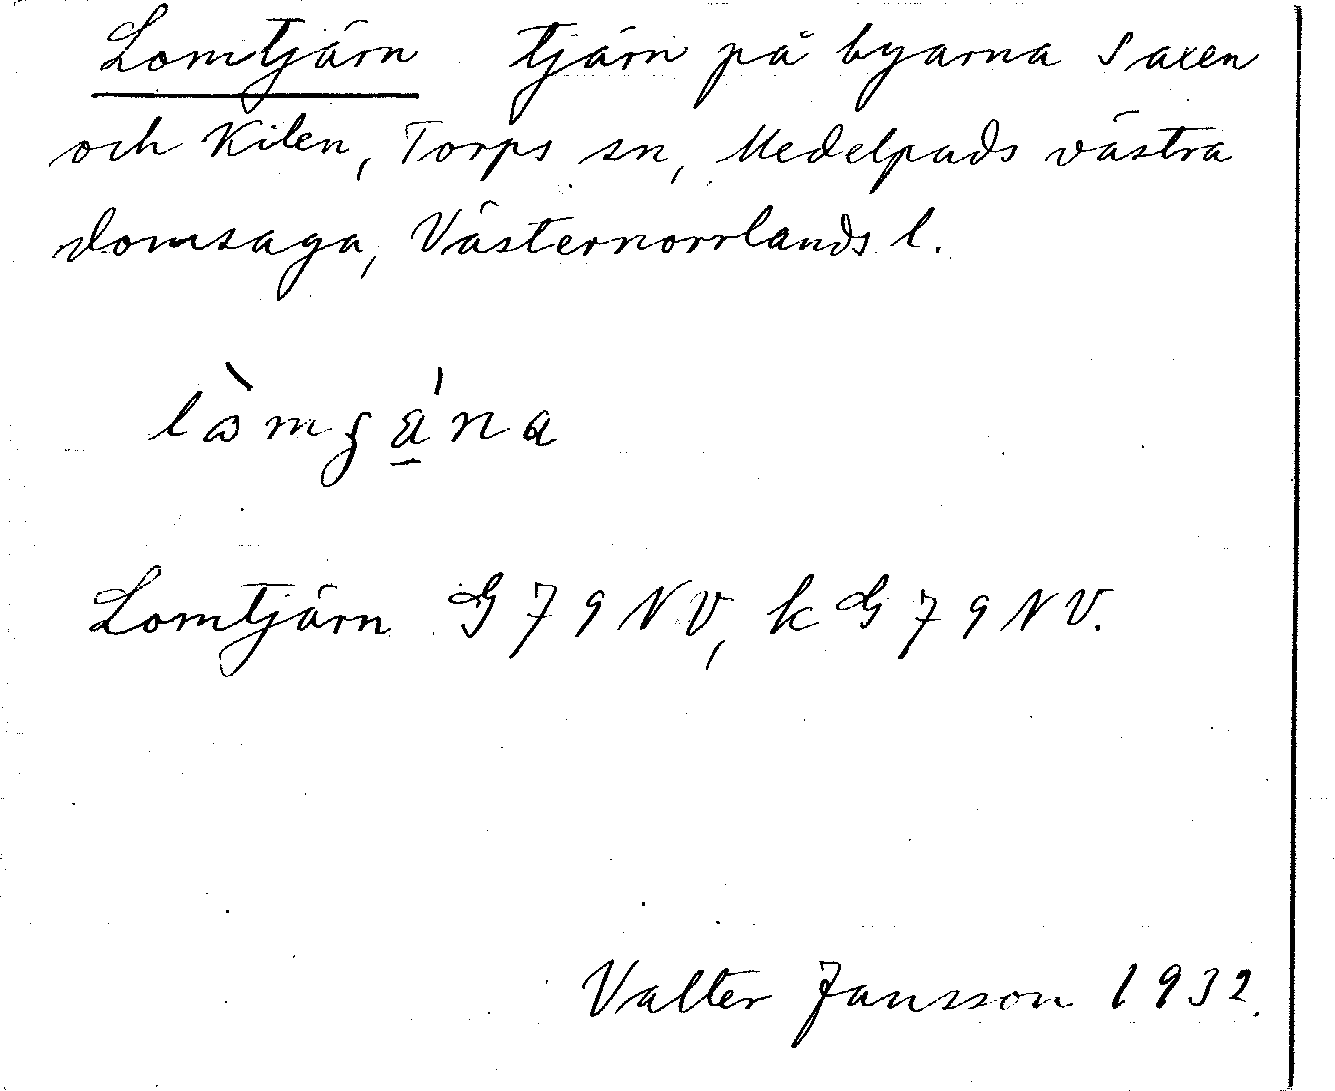 Lomtjärn tjärn på byarna Saxen
och Kilen, Torps sn, Medelpads västra
domsaga, Västernorrlands l.
Lomtjärn G79NV, kG79NV.
Valter Jansson 1932.